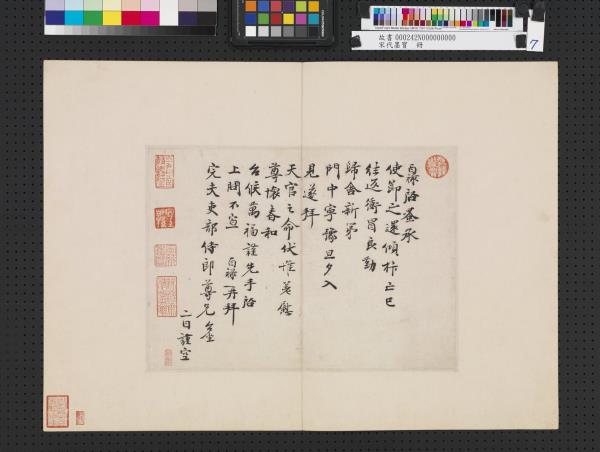 故書 000242N000000000
宋代墨寶 冊
7
百祿啓蚤承
使節之還傾 亡已
往返衝冒良勤
歸舍新第
門中寧豫旦夕入
見遂拜
天官之命伏惟英慰
尊懷春和
台候萬福謹先手啓
上聞不宣 百祿再拜
完夫吏部侍郎尊兄台坐
二日謹空